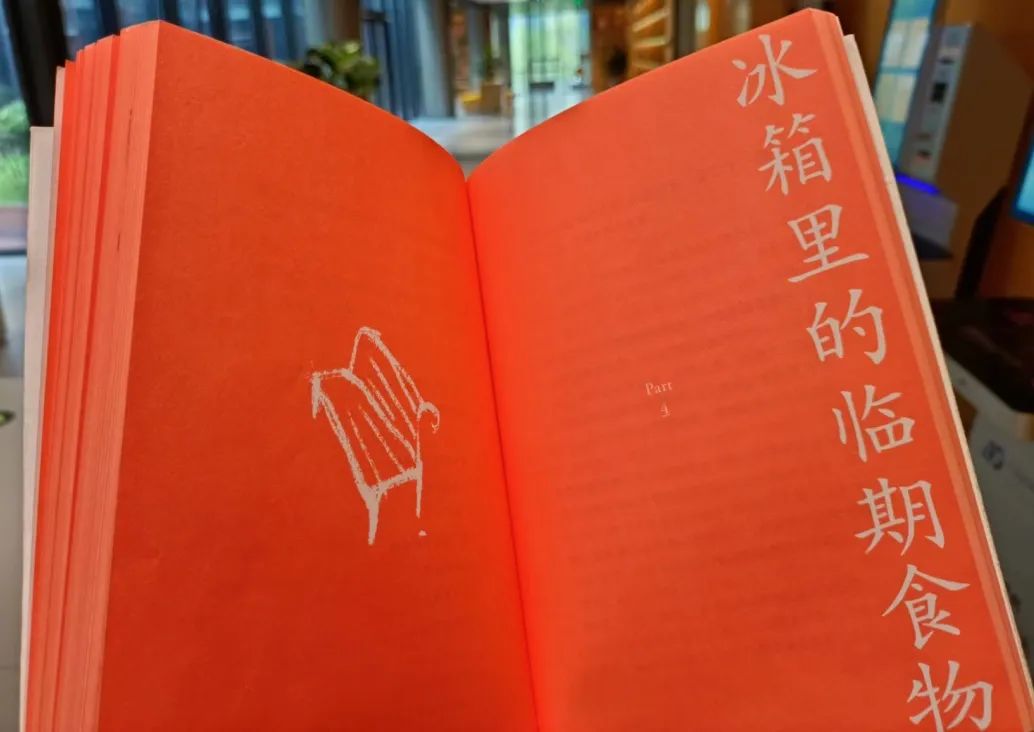 冰箱里的临期食物
Part
4